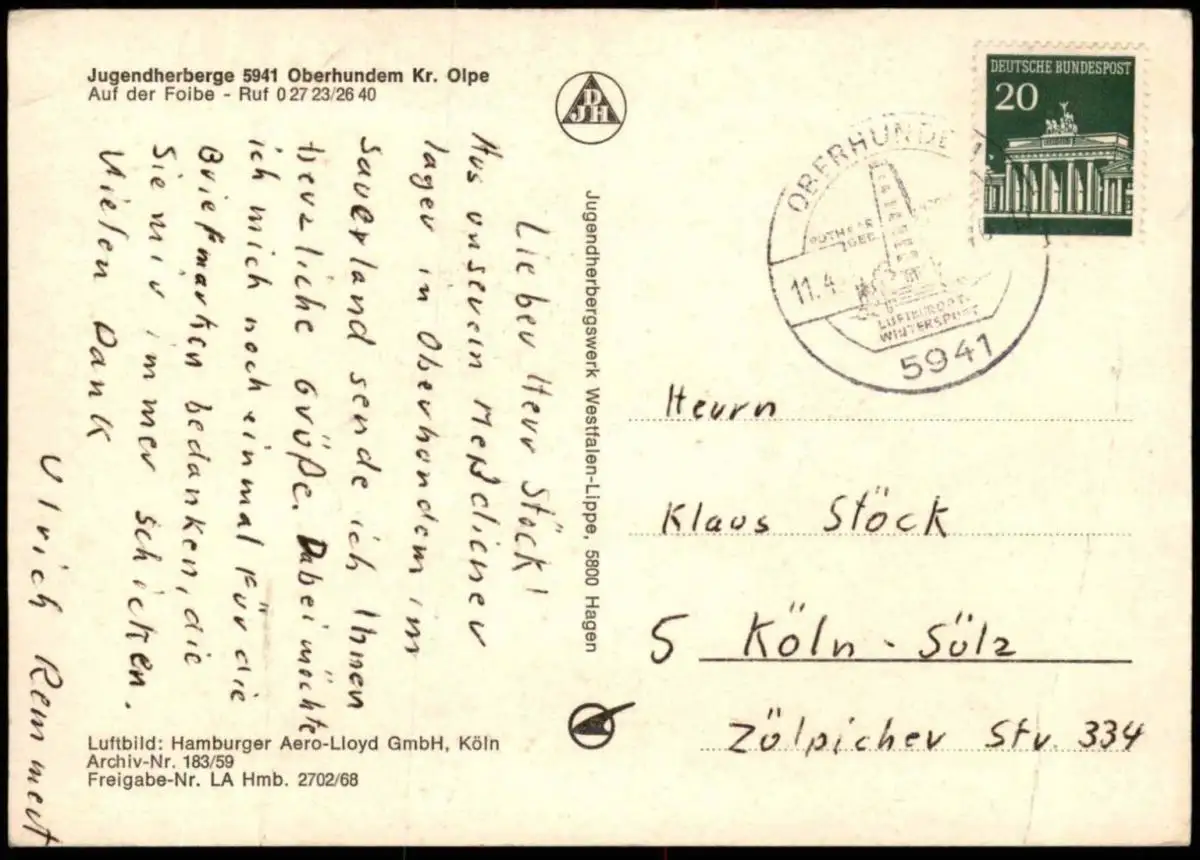 Jugendherberge 5941 Oberhundem Kr. Olpe
Auf der Foibe - Ruf 0 27 23/26 40
DJH
Lieber Herr Stöck!
Aus unserem Meßdiener
lager in Oberhundem im
Sauerland sende ich Ihnen
herzliche Grüße. Dabei möchte
ich mich noch einmal für die
Briefmarken bedanken, die
Sie mir immer schicken.
Vielen Dank
Ulrich Remmert
Luftbild: Hamburger Aero-Lloyd GmbH, Köln
Archiv-Nr. 183/59
Freigabe-Nr. LA Hmb. 2702/68
Jugendherbergswerk Westfalen-Lippe, 5800 Hagen
DEUTSCHE BUNDESPOST
20
OBERHUNDE
11.4
LUFTKURORT
WINTERSPORT
5941
Herrn
Klaus Stöck
5 Köln - Sülz
Zülpicher Str. 334